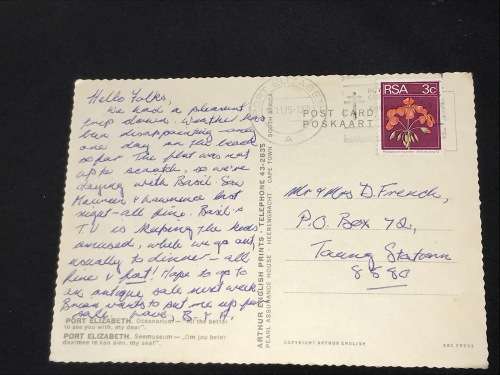 Hello Folks,
We had a pleasant
trip down. Weather has
been disappointing – only
one day on the beach
so far. The flat was not
up to scratch, so we're
staying with Basil. Saw
Maureen & Lawrence last
night – all fine. Basil's
TV is keeping the kids
amused, while we go out,
usually to dinner – all
fine & fat! Hope to go to
an antique sale next week.
Brian wants to put me up for
sale. Love, B. & A.
PORT ELIZABETH. Oceanarium — "All the better
to see you with, my dear".
PORT ELIZABETH. Seemuseum — "Om jou beter
daarmee te kan sien, my seat".
ARTHUR ENGLISH PRINTS · TELEPHONE 43-2835
PEARL ASSURANCE HOUSE · HEERENGRACHT · CAPE TOWN · SOUTH AFRICA
POST CARD
POSKAART
RSA 3c
Mr & Mrs D. French,
P.O. Box 72,
Taung Station
8580
COPYRIGHT ARTHUR ENGLISH